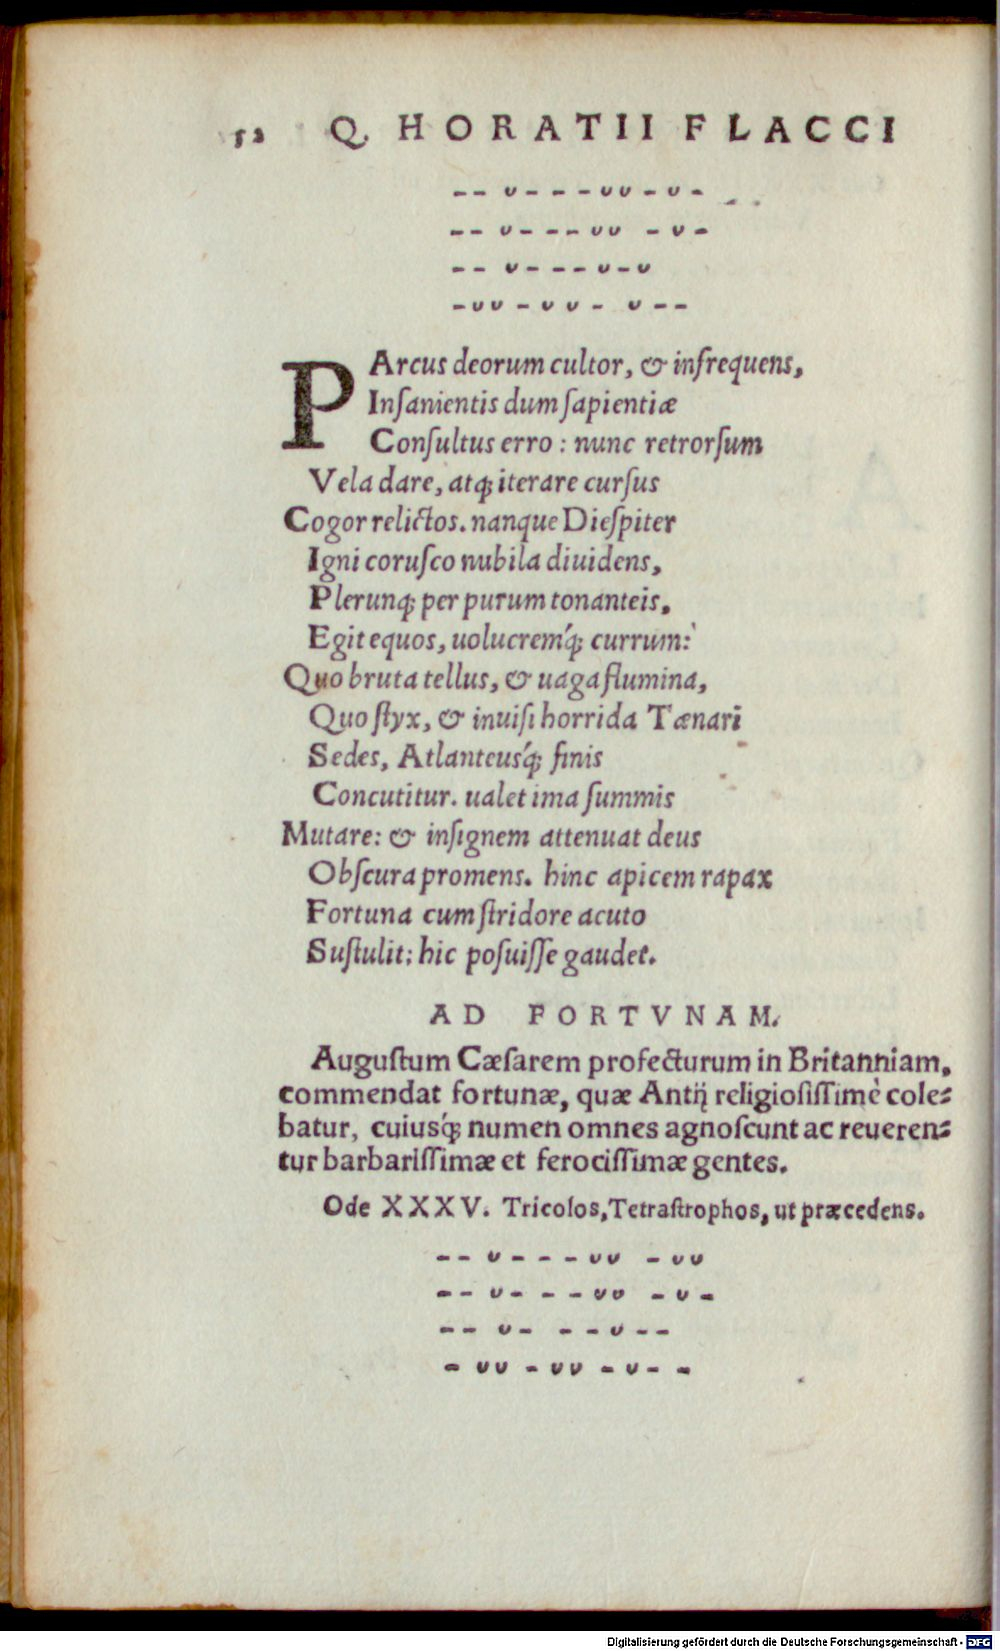 52 Q. HORATII FLACCI
-- ᴗ- --ᴗᴗ -ᴗ-
-- ᴗ- --ᴗᴗ -ᴗ-
-- ᴗ- --ᴗ-ᴗ
-ᴗᴗ -ᴗᴗ- ᴗ--
PArcus deorum cultor, & infrequens,
Inſanientis dum ſapientiæ
Conſultus erro: nunc retrorſum
Vela dare, atq; iterare curſus
Cogor relictos. nanque Dieſpiter
Igni coruſco nubila diuidens,
Plerunq; per purum tonanteis,
Egit equos, uolucremq́; currum:
Quo bruta tellus, & uaga flumina,
Quo ſtyx, & inuiſi horrida Tænari
Sedes, Atlanteusq́; finis
Concutitur. ualet ima ſummis
Mutare: & inſignem attenuat deus
Obſcura promens. hinc apicem rapax
Fortuna cum ſtridore acuto
Suſtulit; hic poſuiſſe gaudet.
AD FORTVNAM.
Auguſtum Cæſarem profecturum in Britanniam,
commendat fortunæ, quæ Antij religioſiſſimè cole-
batur, cuiusq́; numen omnes agnoſcunt ac reueren-
tur barbariſſimæ et ferociſſimæ gentes.
Ode XXXV. Tricolos, Tetraſtrophos, ut præcedens.
-- ᴗ- --ᴗᴗ -ᴗᴗ
-- ᴗ- --ᴗᴗ -ᴗ-
-- ᴗ- --ᴗ--
- ᴗᴗ -ᴗᴗ -ᴗ- -
Digitalisierung gefördert durch die Deutsche Forschungsgemeinschaft - DFG